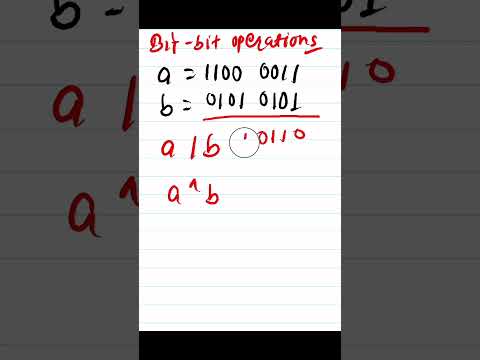 Bit-bit operations
a = 1100 0011
b = 0101 0101
a | b 10110
a ^ b